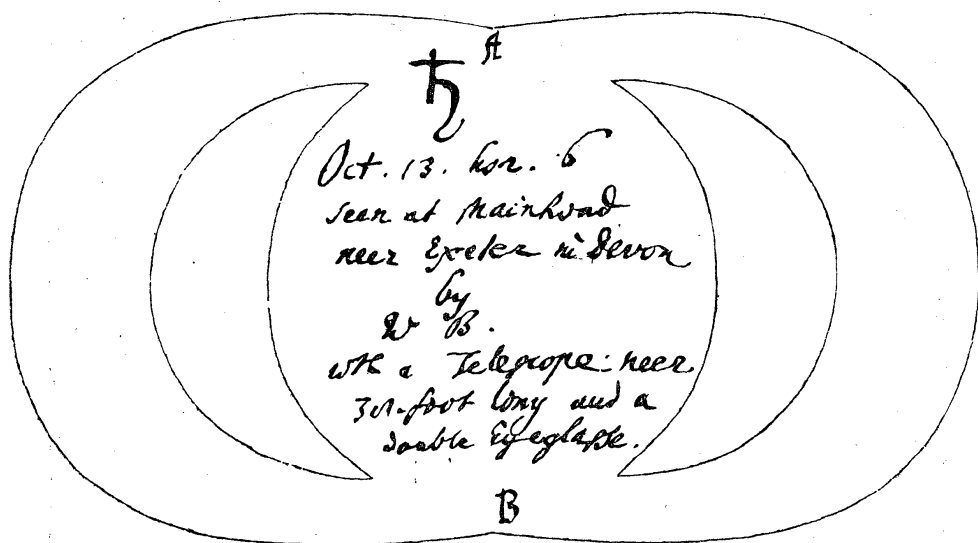 A
♄
Oct. 13. hor. 6
seen at Mainhead
neer Exeter in Devon
by
W B.
wth a Telescope neer
foot long and a
double Eyeglasse.
B